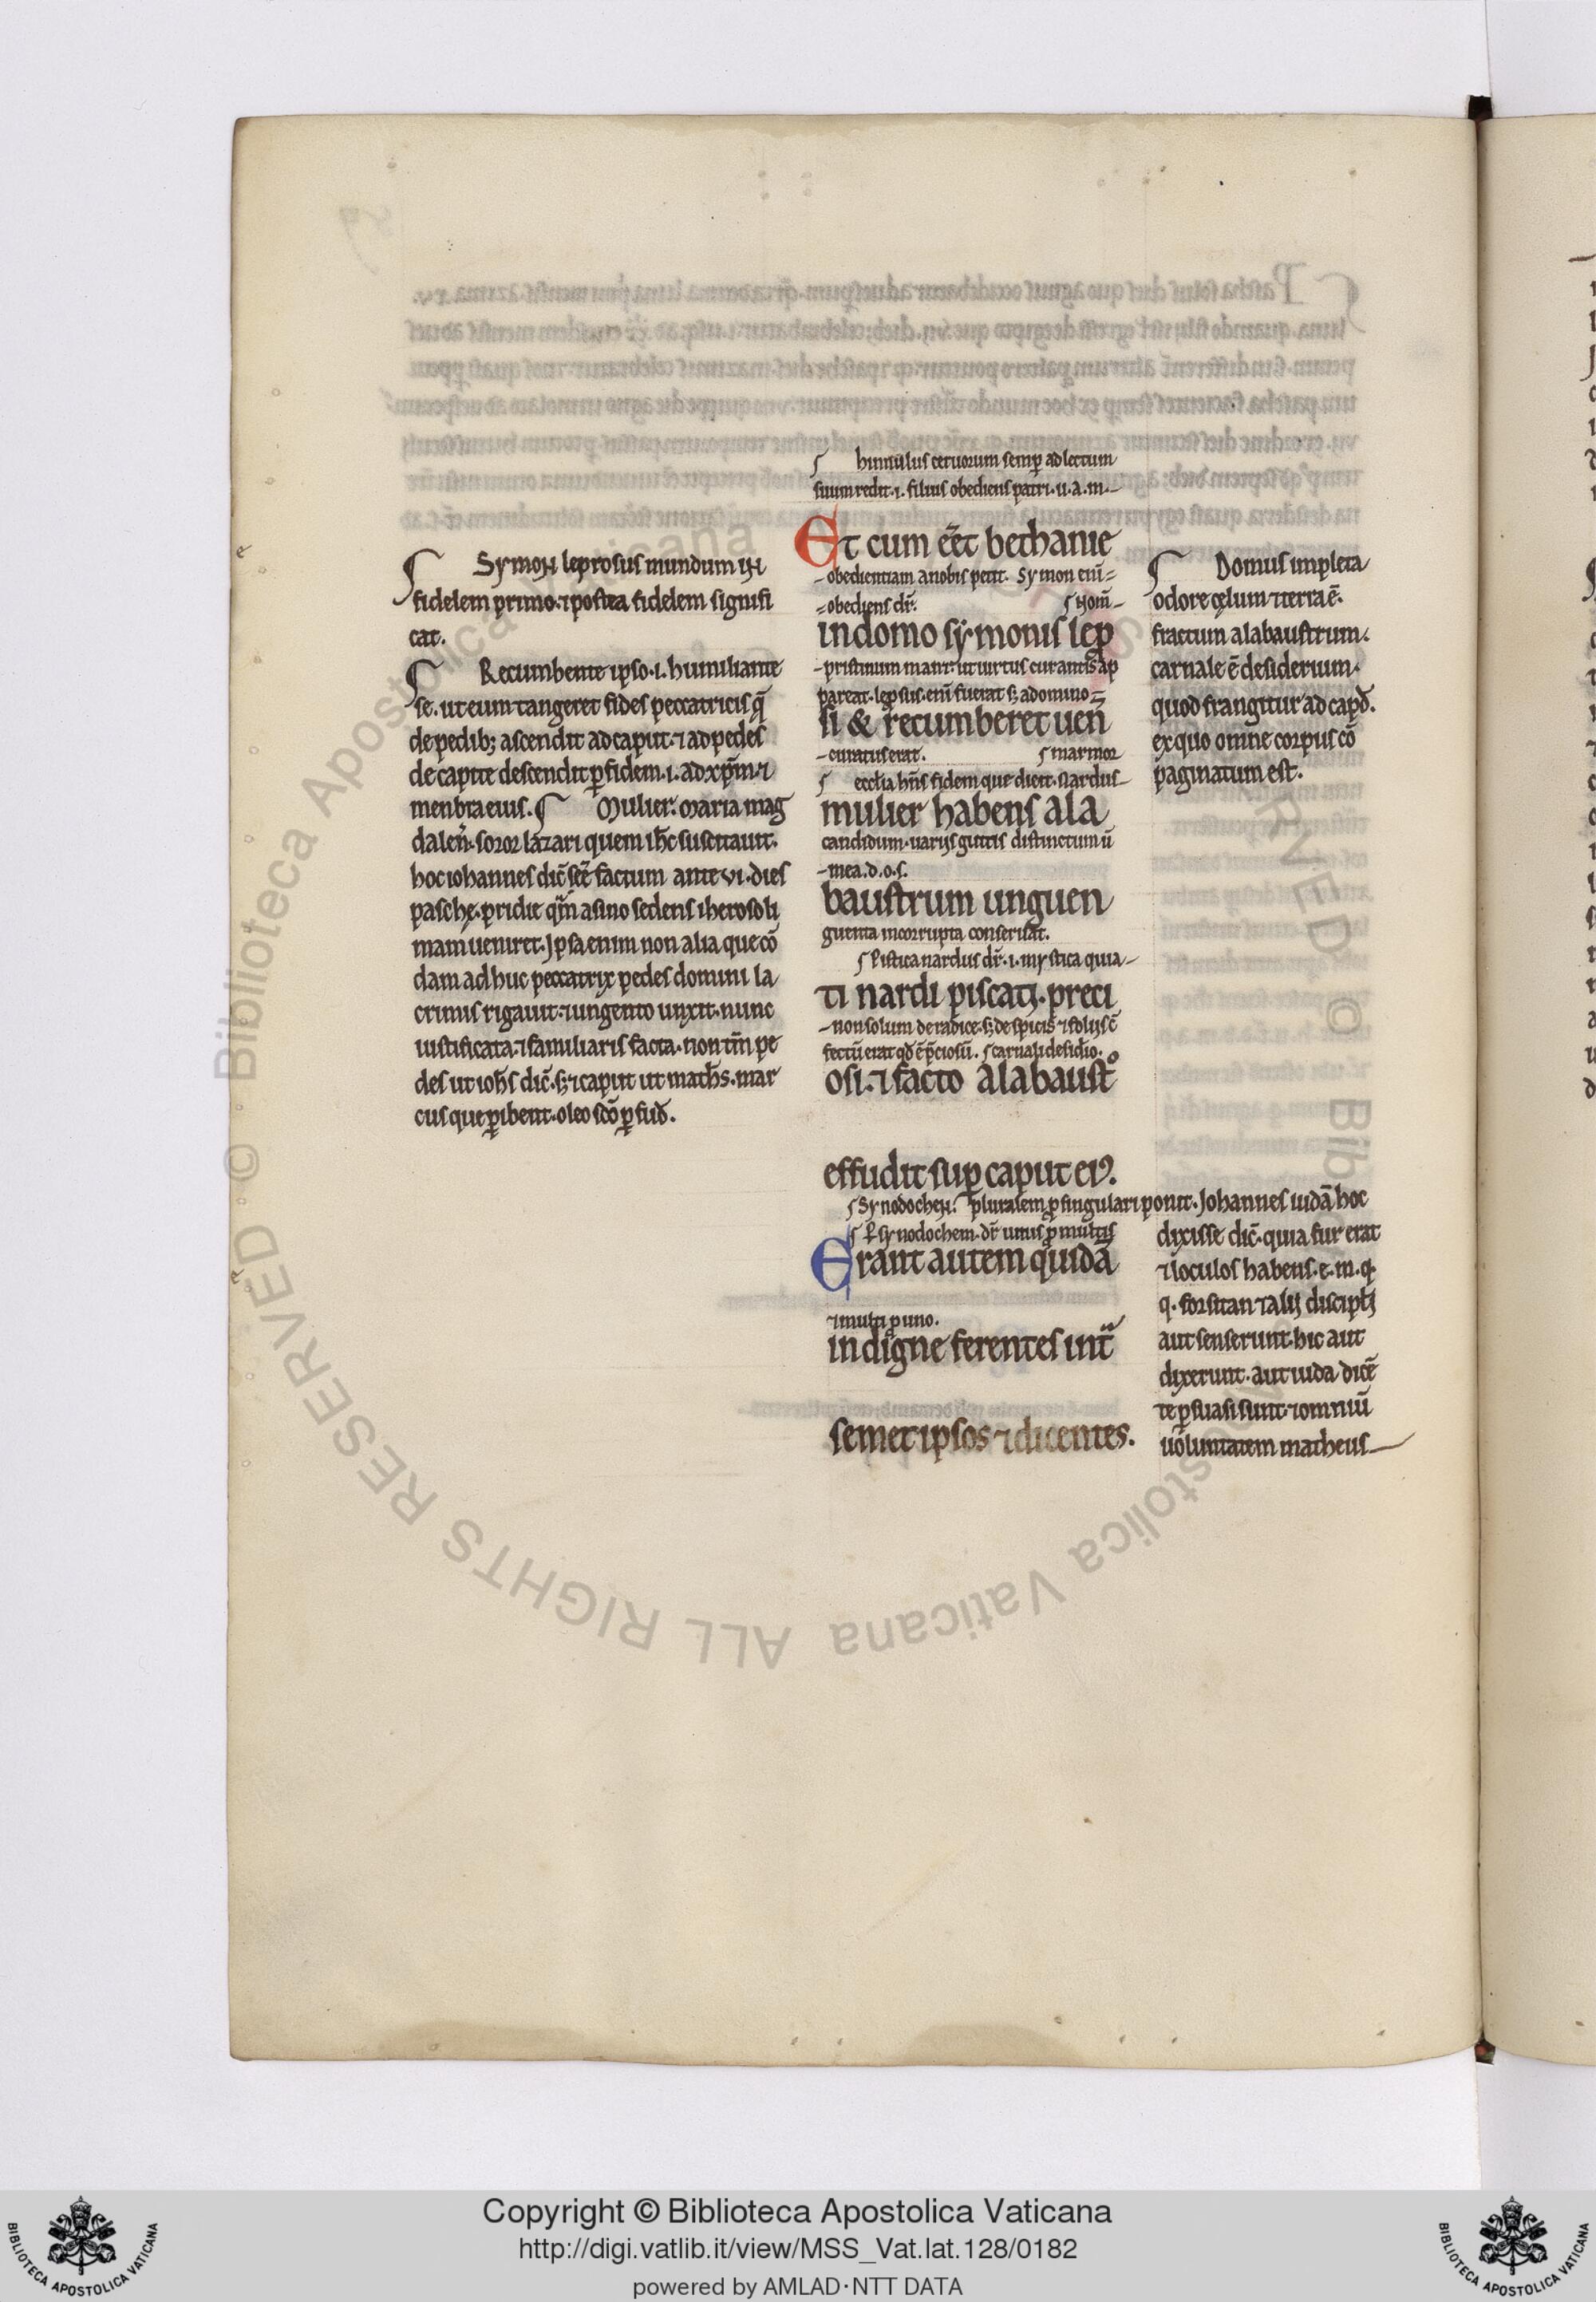 Symon leprosus mundum in
fidelem primo. ⁊ postea fidelem signifi
cat.
Recumbente ipso .i. humiliante
se. ut eum tangeret fides peccatricis q̄
de pedib; ascendit ad caput. ⁊ ad pedes
de capite descendit ꝑ fidem .i. ad xp̄m ⁊
menbra eius. Mulier. Maria mag
dalen̄. soror lazari quem ih̄c suscitauit.
hoc iohannes dic̄ sec̄ factum ante vi. dies
paschę. pridie qm̄ asino sedens iherosoli
mam ueniret. Ipsa enim non alia que cō
dam ad huc peccatrix pedes domini la
crimis rigauit. ⁊ ungento unxit. nunc
iustificata. ⁊ familiaris facta. non tm̄ pe
des ut ioh̄s dic̄. s; ⁊ caput ut math̄s. mar
cus que ꝑibent. oleo scō ꝑfud̄.
hinnulus ceruorum semꝑ ad lectum
suum redit .i. filius obediens patri. u. a. m.
Et cum eēt bethanie
obedientiam a nobis petit. Symon eni̅
obediens dr̄. nom̄
in domo symonis lep
pristinum manet. ut uirtus curantis ap
pareat. leprosus eni̅ fuerat s; a domino
si & recumberet uen̄
curatus erat. marmor
eccl̄ia hn̄s fidem que dicit. Nardus
mulier habens ala
candidum. uariis guttis distinctum ū
mea. d. o. s.
baustrum unguen
guenta incorrupta conseruat.
Pistica nardus dr̄ .i. mystica quia
ti nardi piscati. preci
non solum de radice. s; de spicis ⁊ foliis c̄
fectū erat qd̄ ē p̄ciosū. carnali desid̄io.
osi. ⁊ facto alabaustº
effudit suꝑ caput eiꝰ.
Synodochen. pluralem ꝓ singulari ponit. Johannes iudā hoc
ꝑ synodochem. dr̄ unus ꝓ multis
Erant autem quidā
⁊ multi ꝓ uno.
indigne ferentes int̄
semet ipsos ⁊ dicentes.
Domus impleta
odore cęlum ⁊ terra ē.
fractum alabaustrum.
carnale ē desiderium.
quod frangitur ad capd̄.
ex quo omne corpus cō
paginatum est.
dixisse dic̄. quia fur erat
⁊ loculos habens. e. m. q.
q. forsitan ⁊ alii discipl̄i
aut senserunt. hic aut
dixerunt. aut iuda dicē
te ꝑsuasi sunt. ⁊ omniū
uoluntatem matheus
Copyright © Biblioteca Apostolica Vaticana
http://digi.vatlib.it/view/MSS_Vat.lat.128/0182
powered by AMLAD·NTT DATA
BIBLIOTECA APOSTOLICA VATICANA
BIBLIOTECA APOSTOLICA VATICANA
© Biblioteca Apostolica Vaticana ALL RIGHTS RESERVED